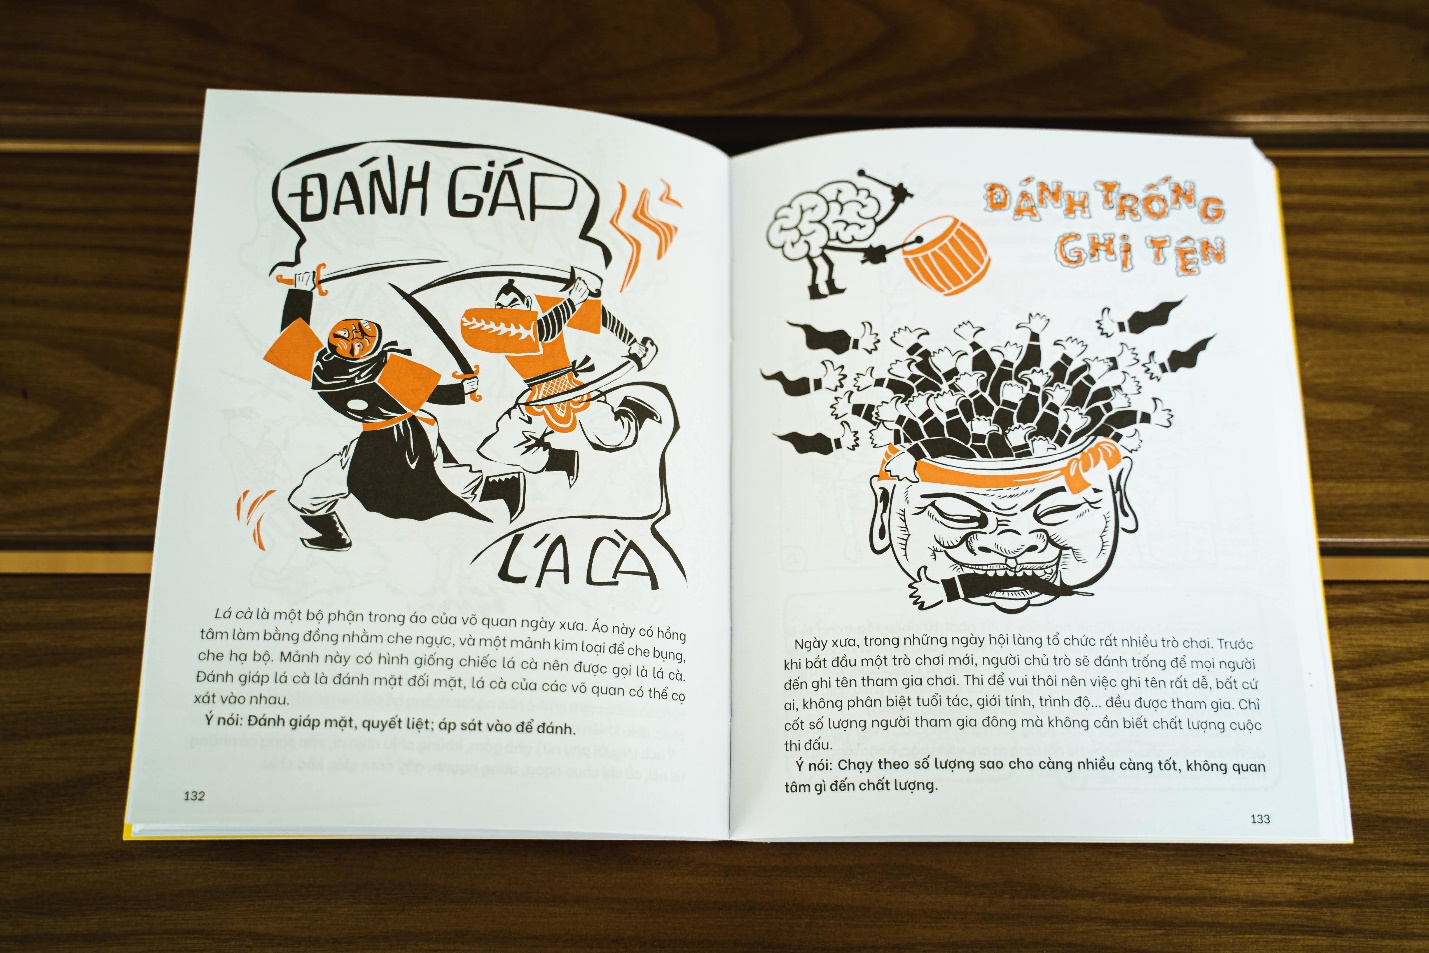 ĐÁNH GIÁP
LÁ CÀ
Lá cà là một bộ phận trong áo của võ quan ngày xưa. Áo này có hồng
tâm làm bằng đồng nhằm che ngực, và một mảnh kim loại để che bụng,
che hạ bộ. Mảnh này có hình giống chiếc lá cà nên được gọi là lá cà.
Đánh giáp lá cà là đánh mặt đối mặt, lá cà của các võ quan có thể cọ
xát vào nhau.
Ý nói: Đánh giáp mặt, quyết liệt; áp sát vào để đánh.
132
ĐÁNH TRỐNG
GHI TÊN
Ngày xưa, trong những ngày hội làng tổ chức rất nhiều trò chơi. Trước
khi bắt đầu một trò chơi mới, người chủ trò sẽ đánh trống để mọi người
đến ghi tên tham gia chơi. Thi để vui thôi nên việc ghi tên rất dễ, bất cứ
ai, không phân biệt tuổi tác, giới tính, trình độ... đều được tham gia. Chỉ
cốt số lượng người tham gia đông mà không cần biết chất lượng cuộc
thi đấu.
Ý nói: Chạy theo số lượng sao cho càng nhiều càng tốt, không quan
tâm gì đến chất lượng.
133